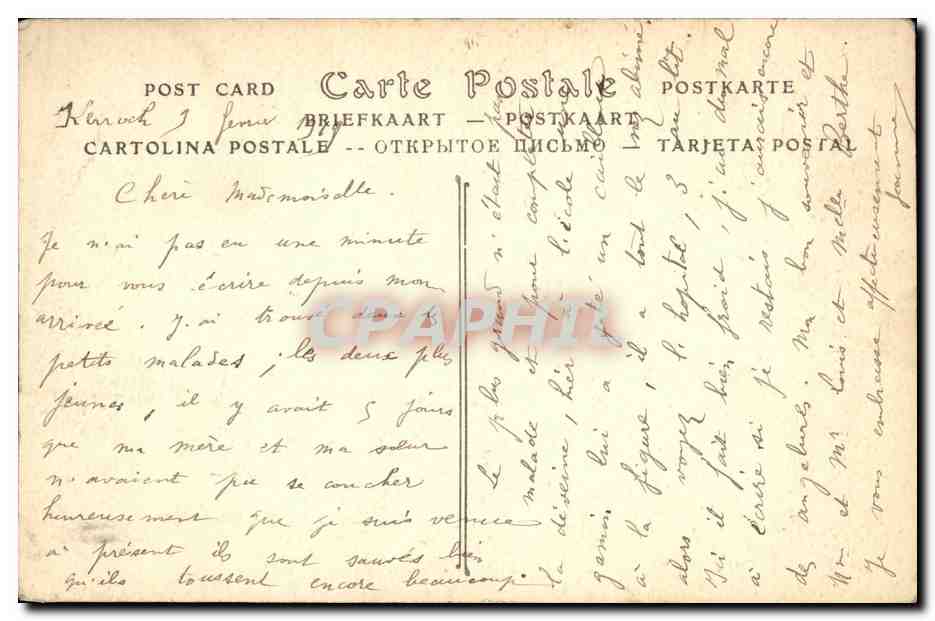 POST CARD Carte Postale POSTKARTE
BRIEFKAART — POSTKAART
CARTOLINA POSTALE -- ОТКРЫТОЕ ПИСЬМО — TARJETA POSTAL
Kerroch 3
Cheré Mademoiselle.
Je n'ai pas eu une minute
pour vous écrire depuis mon
arrivée. J'ai trouvé deux
petits malades; les deux plus
jeunes, il y avait 5 jours
que ma mère et ma sœur
n'avaient pu se coucher
heureusement que je suis venue
à présent ils sont sauvés bien
qu'ils toussent encore beaucoup.
Le plus grand n'était pas
malade et pour complèter
la déveine, hér à l'école un
gamin lui a jeté un caillou
à la figure, il a tout le nez abimé
alors voyez l'hopital, 3 au lit.
Ici il fait bien froid, j'ai du mal
à écrire si je restais j'aurais encore
des angelures, ma bon souvenir et
Mme et Mr Louis et Melle Berthe.
Je vous embrasse affectueusement
Jeanne
CPAPHIL